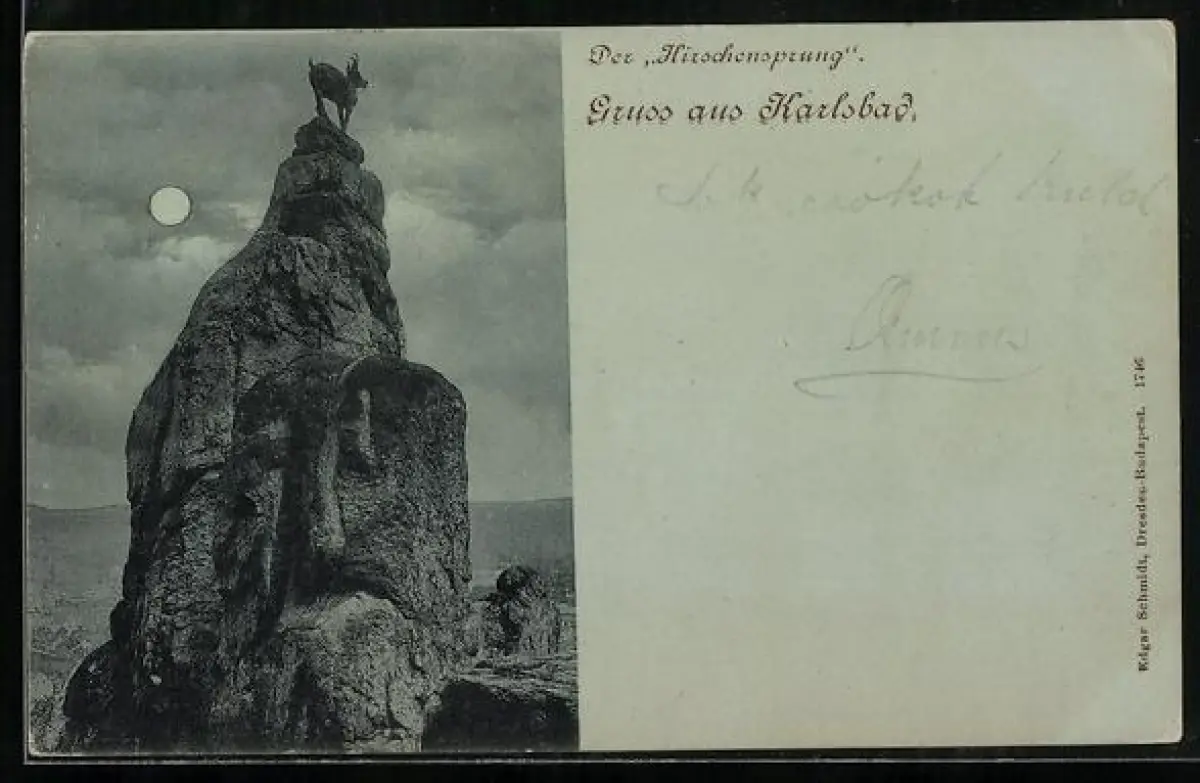 Der „Hirschensprung“.
Gruss aus Karlsbad.
csókok küld
Edgar Schmidt, Dresden-Budapest. 1746